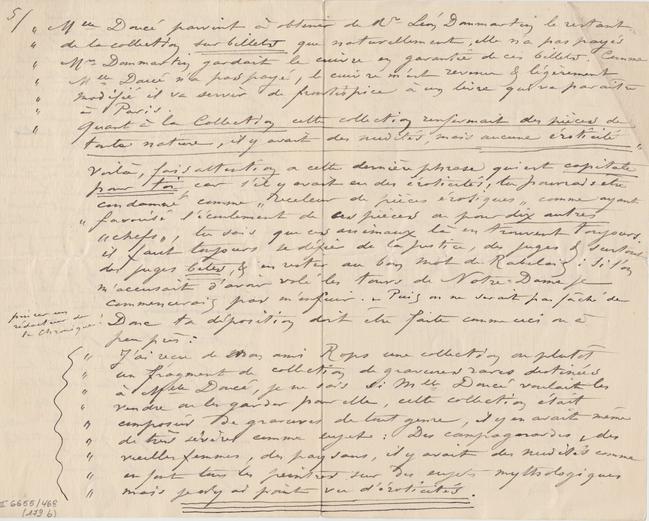 5/
" Mlle Doucé parvint à obtenir de Mr Léon Dommartin le restant
" de la collection sur billets que naturellement, elle n'a pas payés
" Mr Dommartin gardait le cuivre en garantie de ces billets. Comme
" Mlle Doucé n'a pas payé, le cuivre m'est revenu & légèrement
" modifié il va servir de frontispice à un livre qui va paraître
" à Paris.
" Quant à la Collection cette collection renfermait des pièces de
toute nature, il y avait des nudités, mais aucune éroticité "
Voilà, fais attention a cette dernière phrase qui est capitale
pour toi, car s'il y avait eu des éroticités, tu pourrais être
condamné comme „receleur de pièces érotiques", comme ayant
" favorisé l'écoulement de ces pièces ou pour dix autres
"chefs", tu sais que ces animaux là en trouvent toujours.
il faut toujours se défier de la justice, des juges & surtout
des juges belges, & en rester au bon mot de Rabelais: Si l'on
m'accusait d'avoir volé les tours de Notre-Dame je
commencerais par m'enfuir. – Puis on ne serait pas fâché de
pincer un
rédacteur de
la Chronique!
Donc ta déposition doit être faite comme ceci ou à
peu près:
" J'ai reçu de mon ami Rops une collection ou plutôt
" un fragment de collection de gravures rares destinées
" à Mlle Doucé, je ne sais si Mlle Doucé voulait les
" vendre ou les garder pour elle, cette collection était
" composée de gravures de tout genre, il y en avait même
" de très sévères comme sujet: Des campagnardes, des
" vieilles femmes, des paysans, il y avait des nudités comme
" en font tous les peintres sur des sujets mythologiques
" mais je n'y ai point vu d'éroticités.
II 6655/468
(179 b)